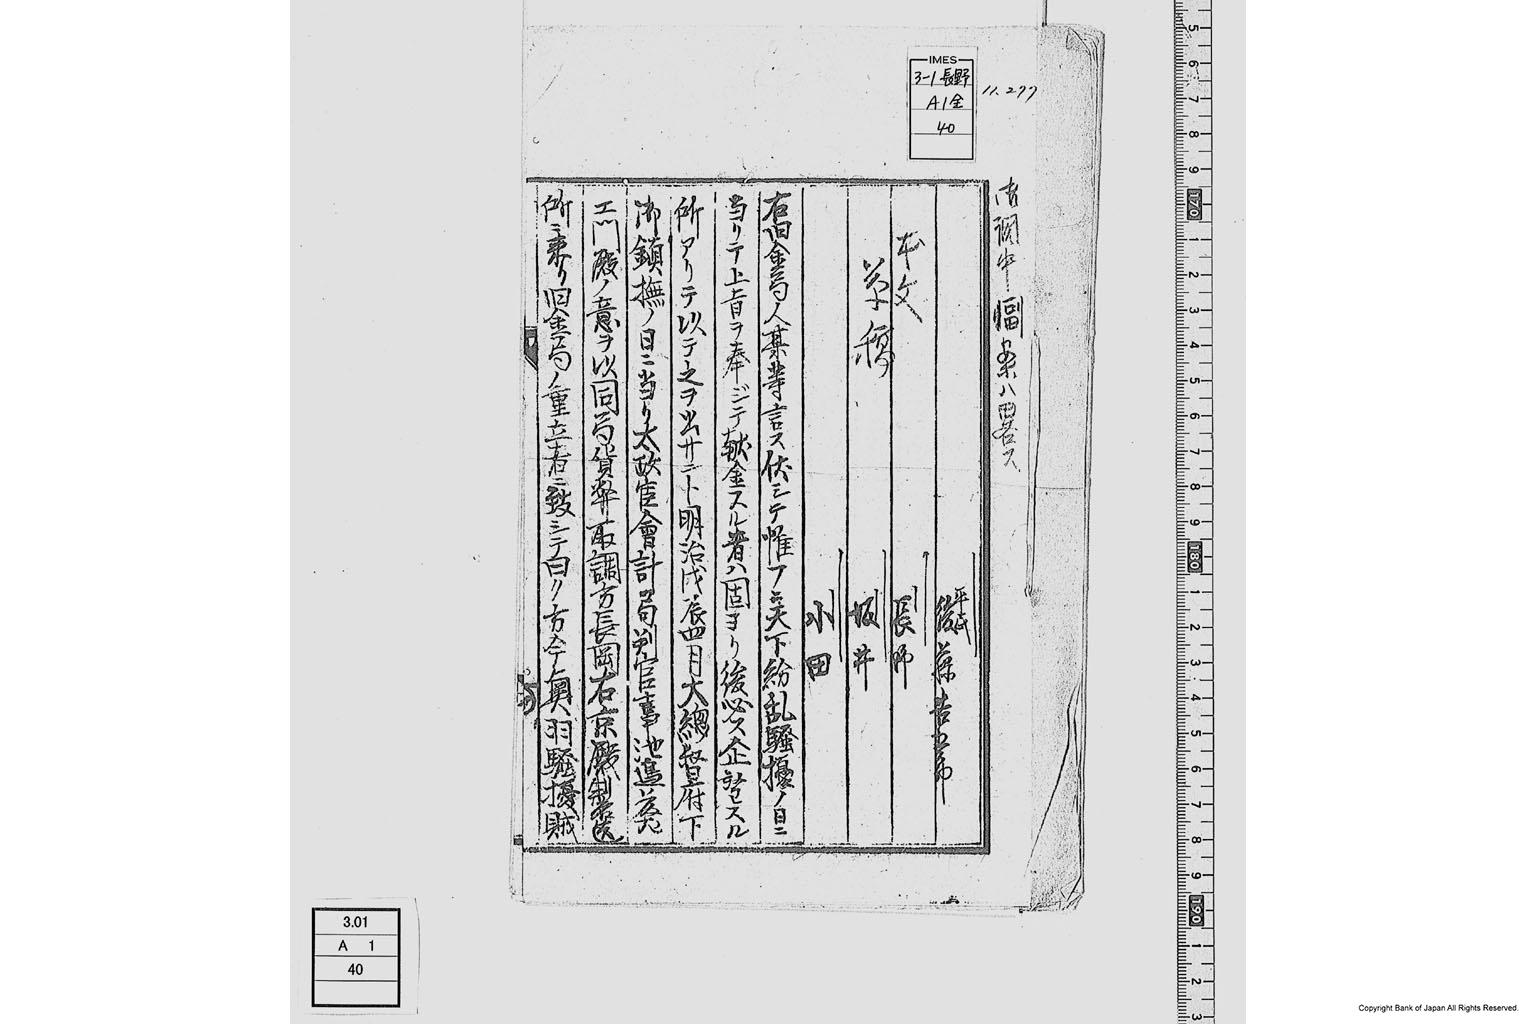 IMES
3-1 長野
A1金
40
11.277
御調中 副案ハ畧ス
平民
後藤吉五郎
本文
長野
草稿
坂井
小田
右旧金局人某等言ス伏シテ惟フニ天下紛乱騒擾ノ日ニ
当リテ上旨ヲ奉ジテ献金スル者ハ固ヨリ後必ス企望スル
所アリテ以テ之ヲ出サント明治戊辰四月大總督府下
御鎮撫ノ日ニ当リ太政官會計局判官事池邉
工門殿ノ意ヲ以同局貨幣取調方長岡右京殿製造
所ニ来リ旧金局ノ重立者ニ致シテ曰ク方今奥羽騒擾賊
3.01
A 1
40
Copyright Bank of Japan All Rights Reserved.